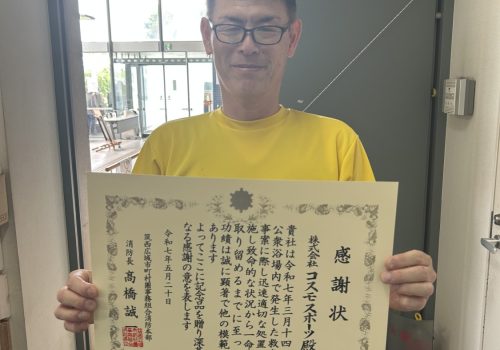 感謝状
株式会社 コスモスポーツ 殿
貴社は令和七年三月十四
公衆浴場内で発生した救
事案に際し迅速適切な処置
施し致命的な状況から一命
取り留めるまでに至っ
功績は誠に顕著で他の模範
あります
よってここに記念品を贈り深
なる感謝の意を表します
令和七年五月二十日
筑西広域市町村圏事務組合消防本部
消防長 高橋 誠